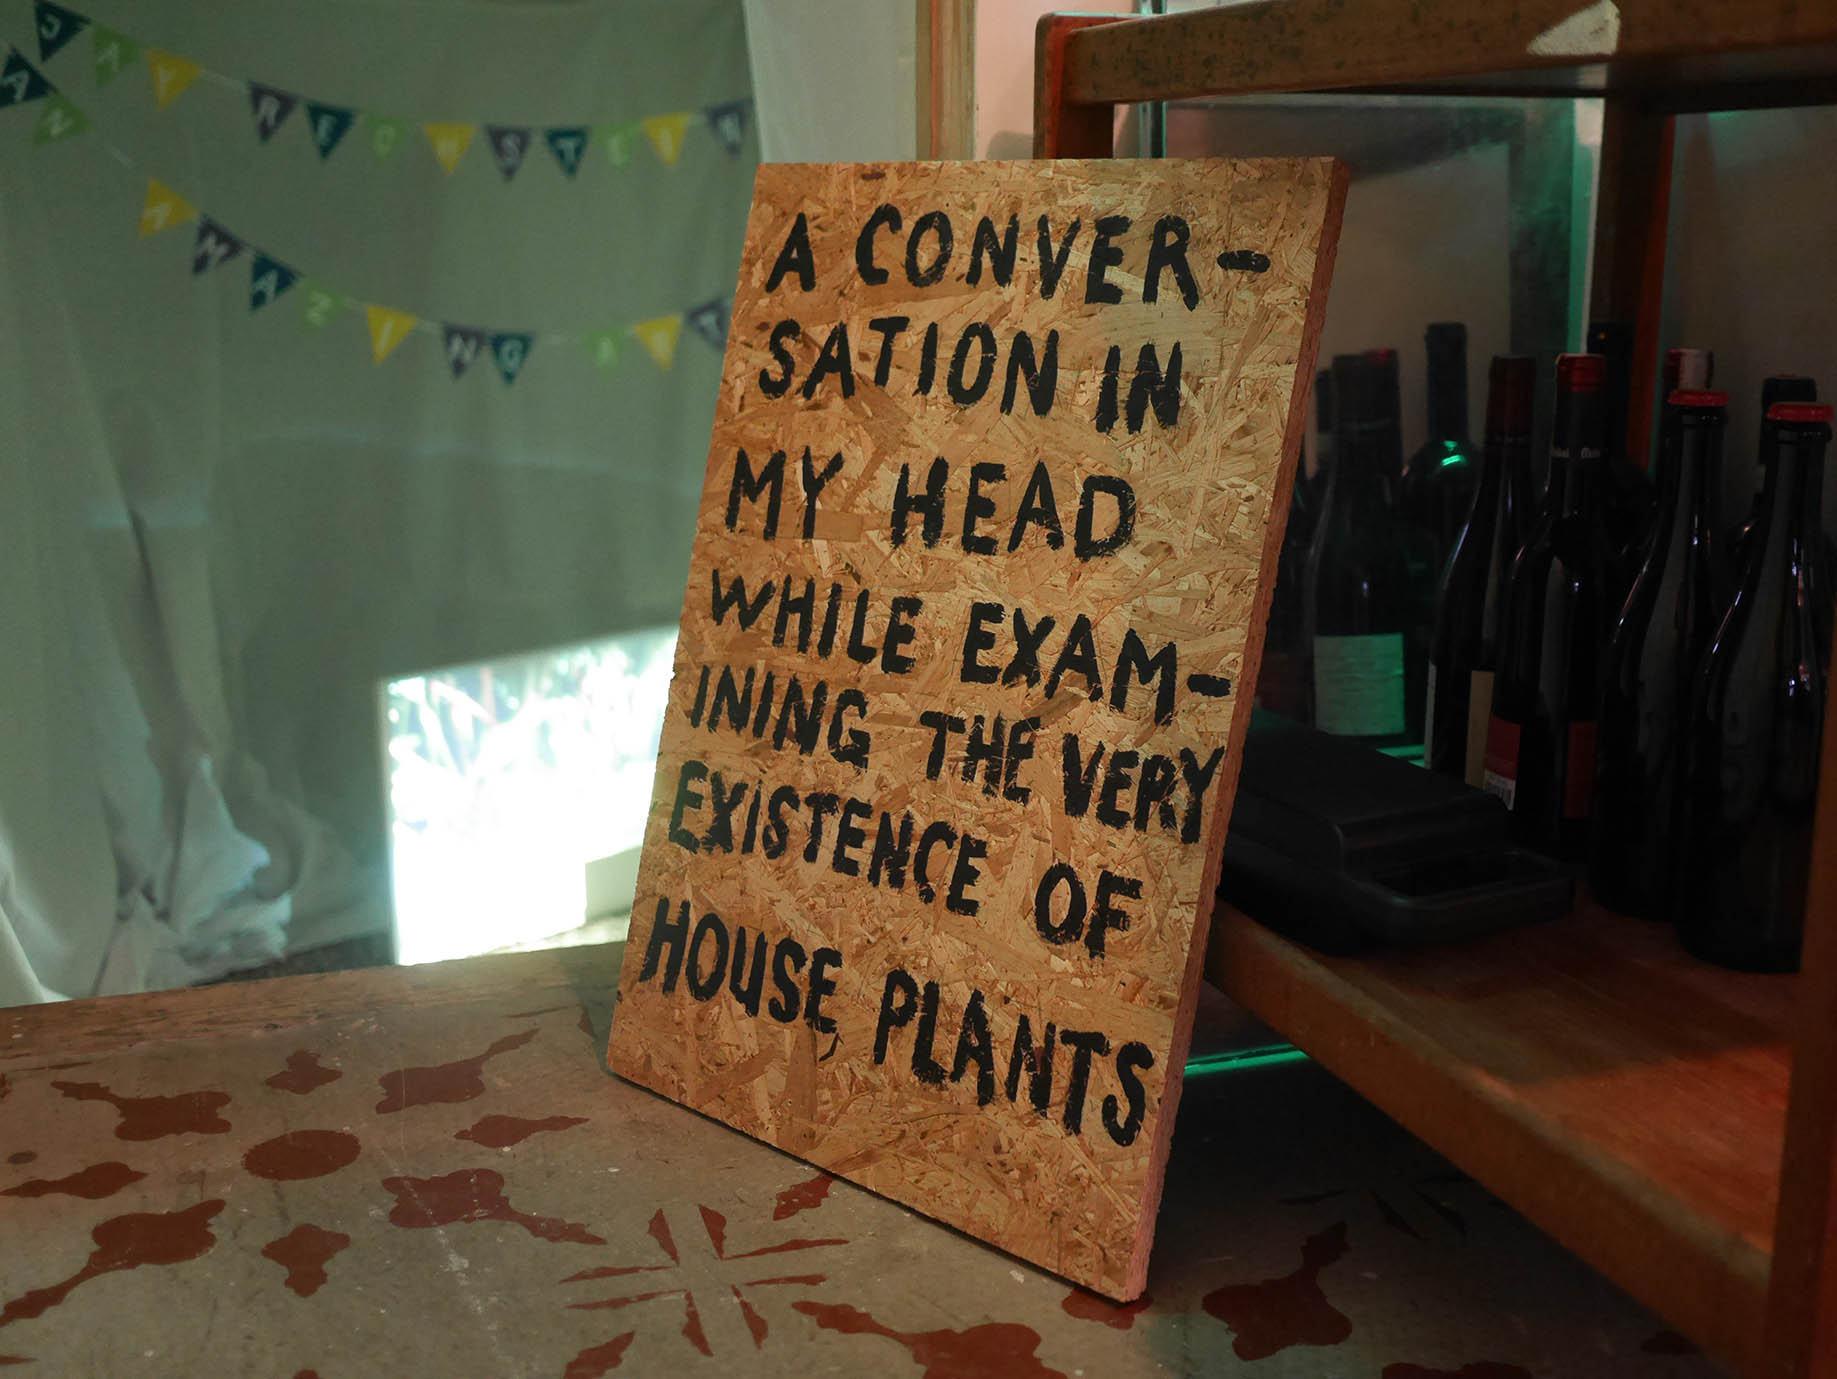 JAY
AN AMAZING
A CONVER-
SATION IN
MY HEAD
WHILE EXAM-
INING THE VERY
EXISTENCE OF
HOUSE PLANTS